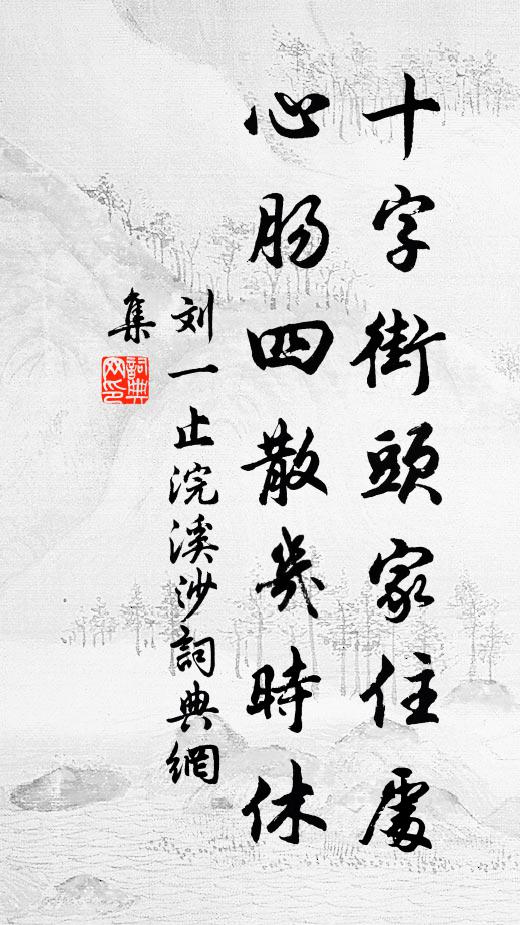 十字街頭家住處
心肠四散幾時休
刘一止浣溪沙詞典網
集
詞典
网印